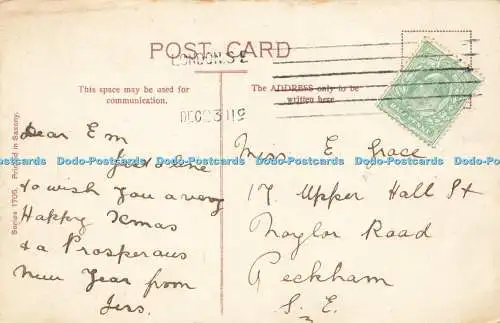 POST CARD
LONDON.S.E
This space may be used for
communication.
The ADDRESS only to be
written here
DEC 23 11
Series 1705. Printed in Saxony.
Dear Em
Just a line
to wish you a very
Happy Xmas
& a Prosperous
New Year from
Jess.
Miss E Grace
17 Upper Hall St
Naylor Road
Peckham
S.E.
Dodo-Postcards Dodo-Postcards Dodo-Postcards Dodo-Postcards Dodo-Postcards Dodo-Postcards